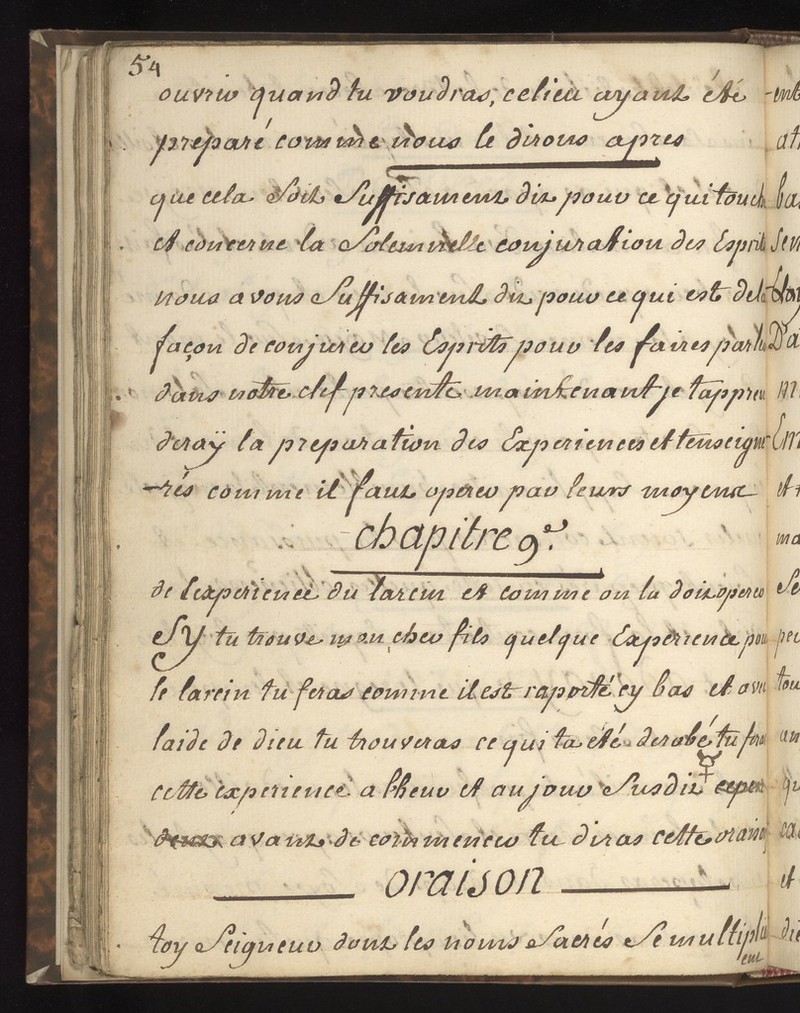 54
ouvrir quand tu voudras, ce lieu ayant été
preparé comme nous le dirons apres
que cela soit suffisament dit pour ce qui touch
et concerne la Solemnelle conjuration des Esprit
nous avons Suffisament dit pour ce qui est de la
façon de conjurer les Esprits pour les faires parle
dans notre clef presente maintenant je t'appren
deraÿ la preparation des Experiences et t'enseigne
-rés comme il faut operer par leurs moyens
chapitre 9e.
de l'experience du larcin et comme on la doit operer
Sy tu trouve mon cher fils quelque Experience pou
le larcin tu feras comme il est raporté cy bas et avec
laide de dieu tu trouveras ce qui ta été derobé tu fera
cette experience a lheur et au jour Susdit ☿
avant de commencer tu diras cette oraison
oraison
toy Seigneur dont les noms Sacrés Se multipli
ent